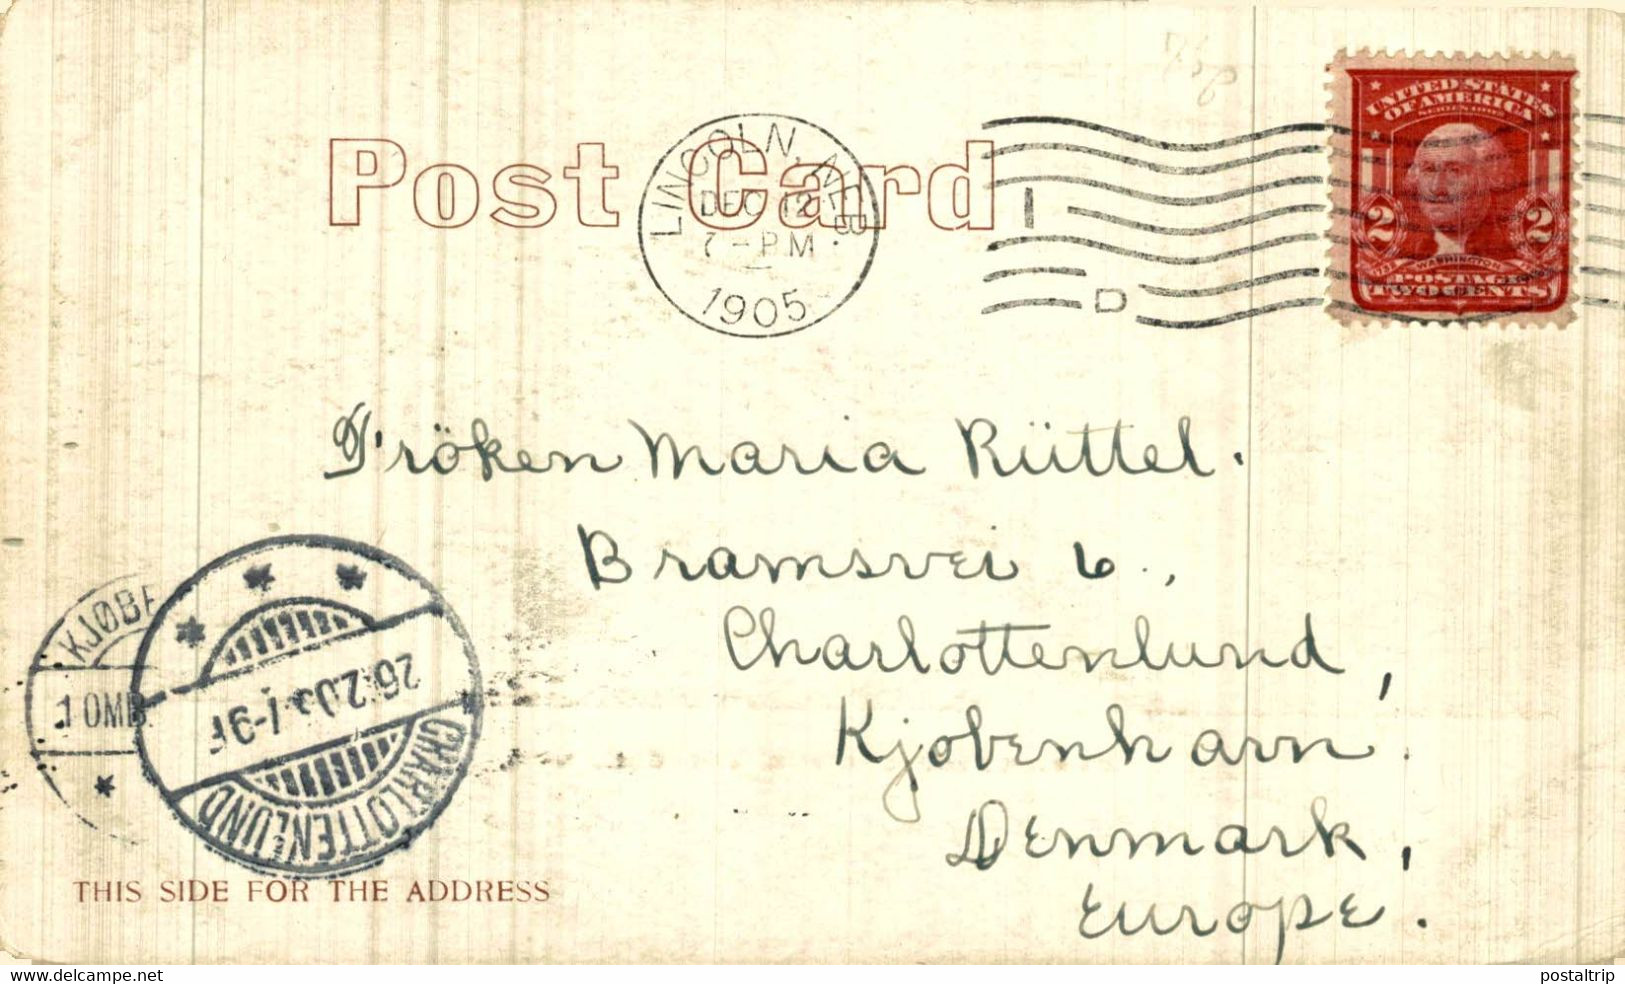 Post Card
LINCOLN, NEB.
DEC 12
7-PM
1905
D
UNITED STATES
OF AMERICA
2 2
WASHINGTON
POSTAGE
TWO CENTS
Fröken Maria Rüttel.
Bramsvei 6.,
Charlottenlund,
Kjobenhavn.
Denmark,
Europe.
KJØBE
1 OMB.
CHARLOTTENLUND
THIS SIDE FOR THE ADDRESS
www.delcampe.net
postaltrip